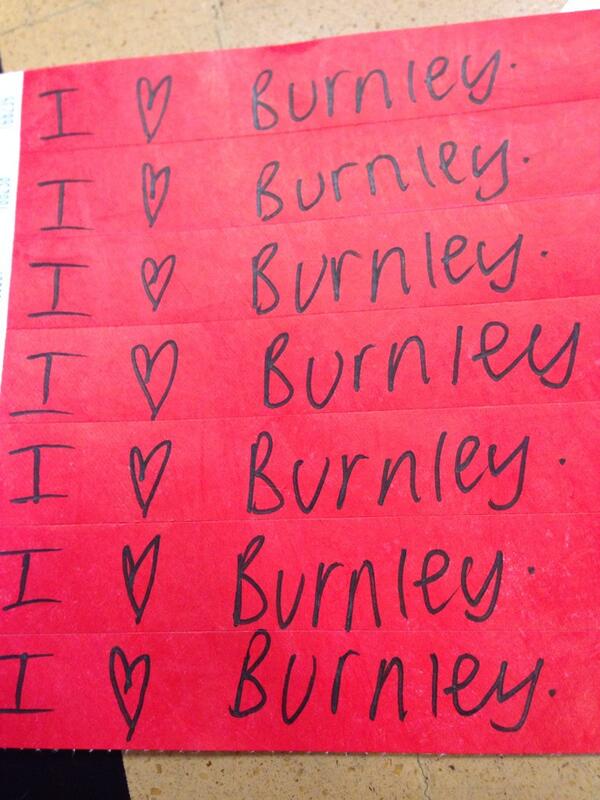 I ♡ Burnley.
I ♡ Burnley.
I ♡ Burnley.
I ♡ Burnley
I ♡ Burnley.
I ♡ Burnley.
I ♡ Burnley.